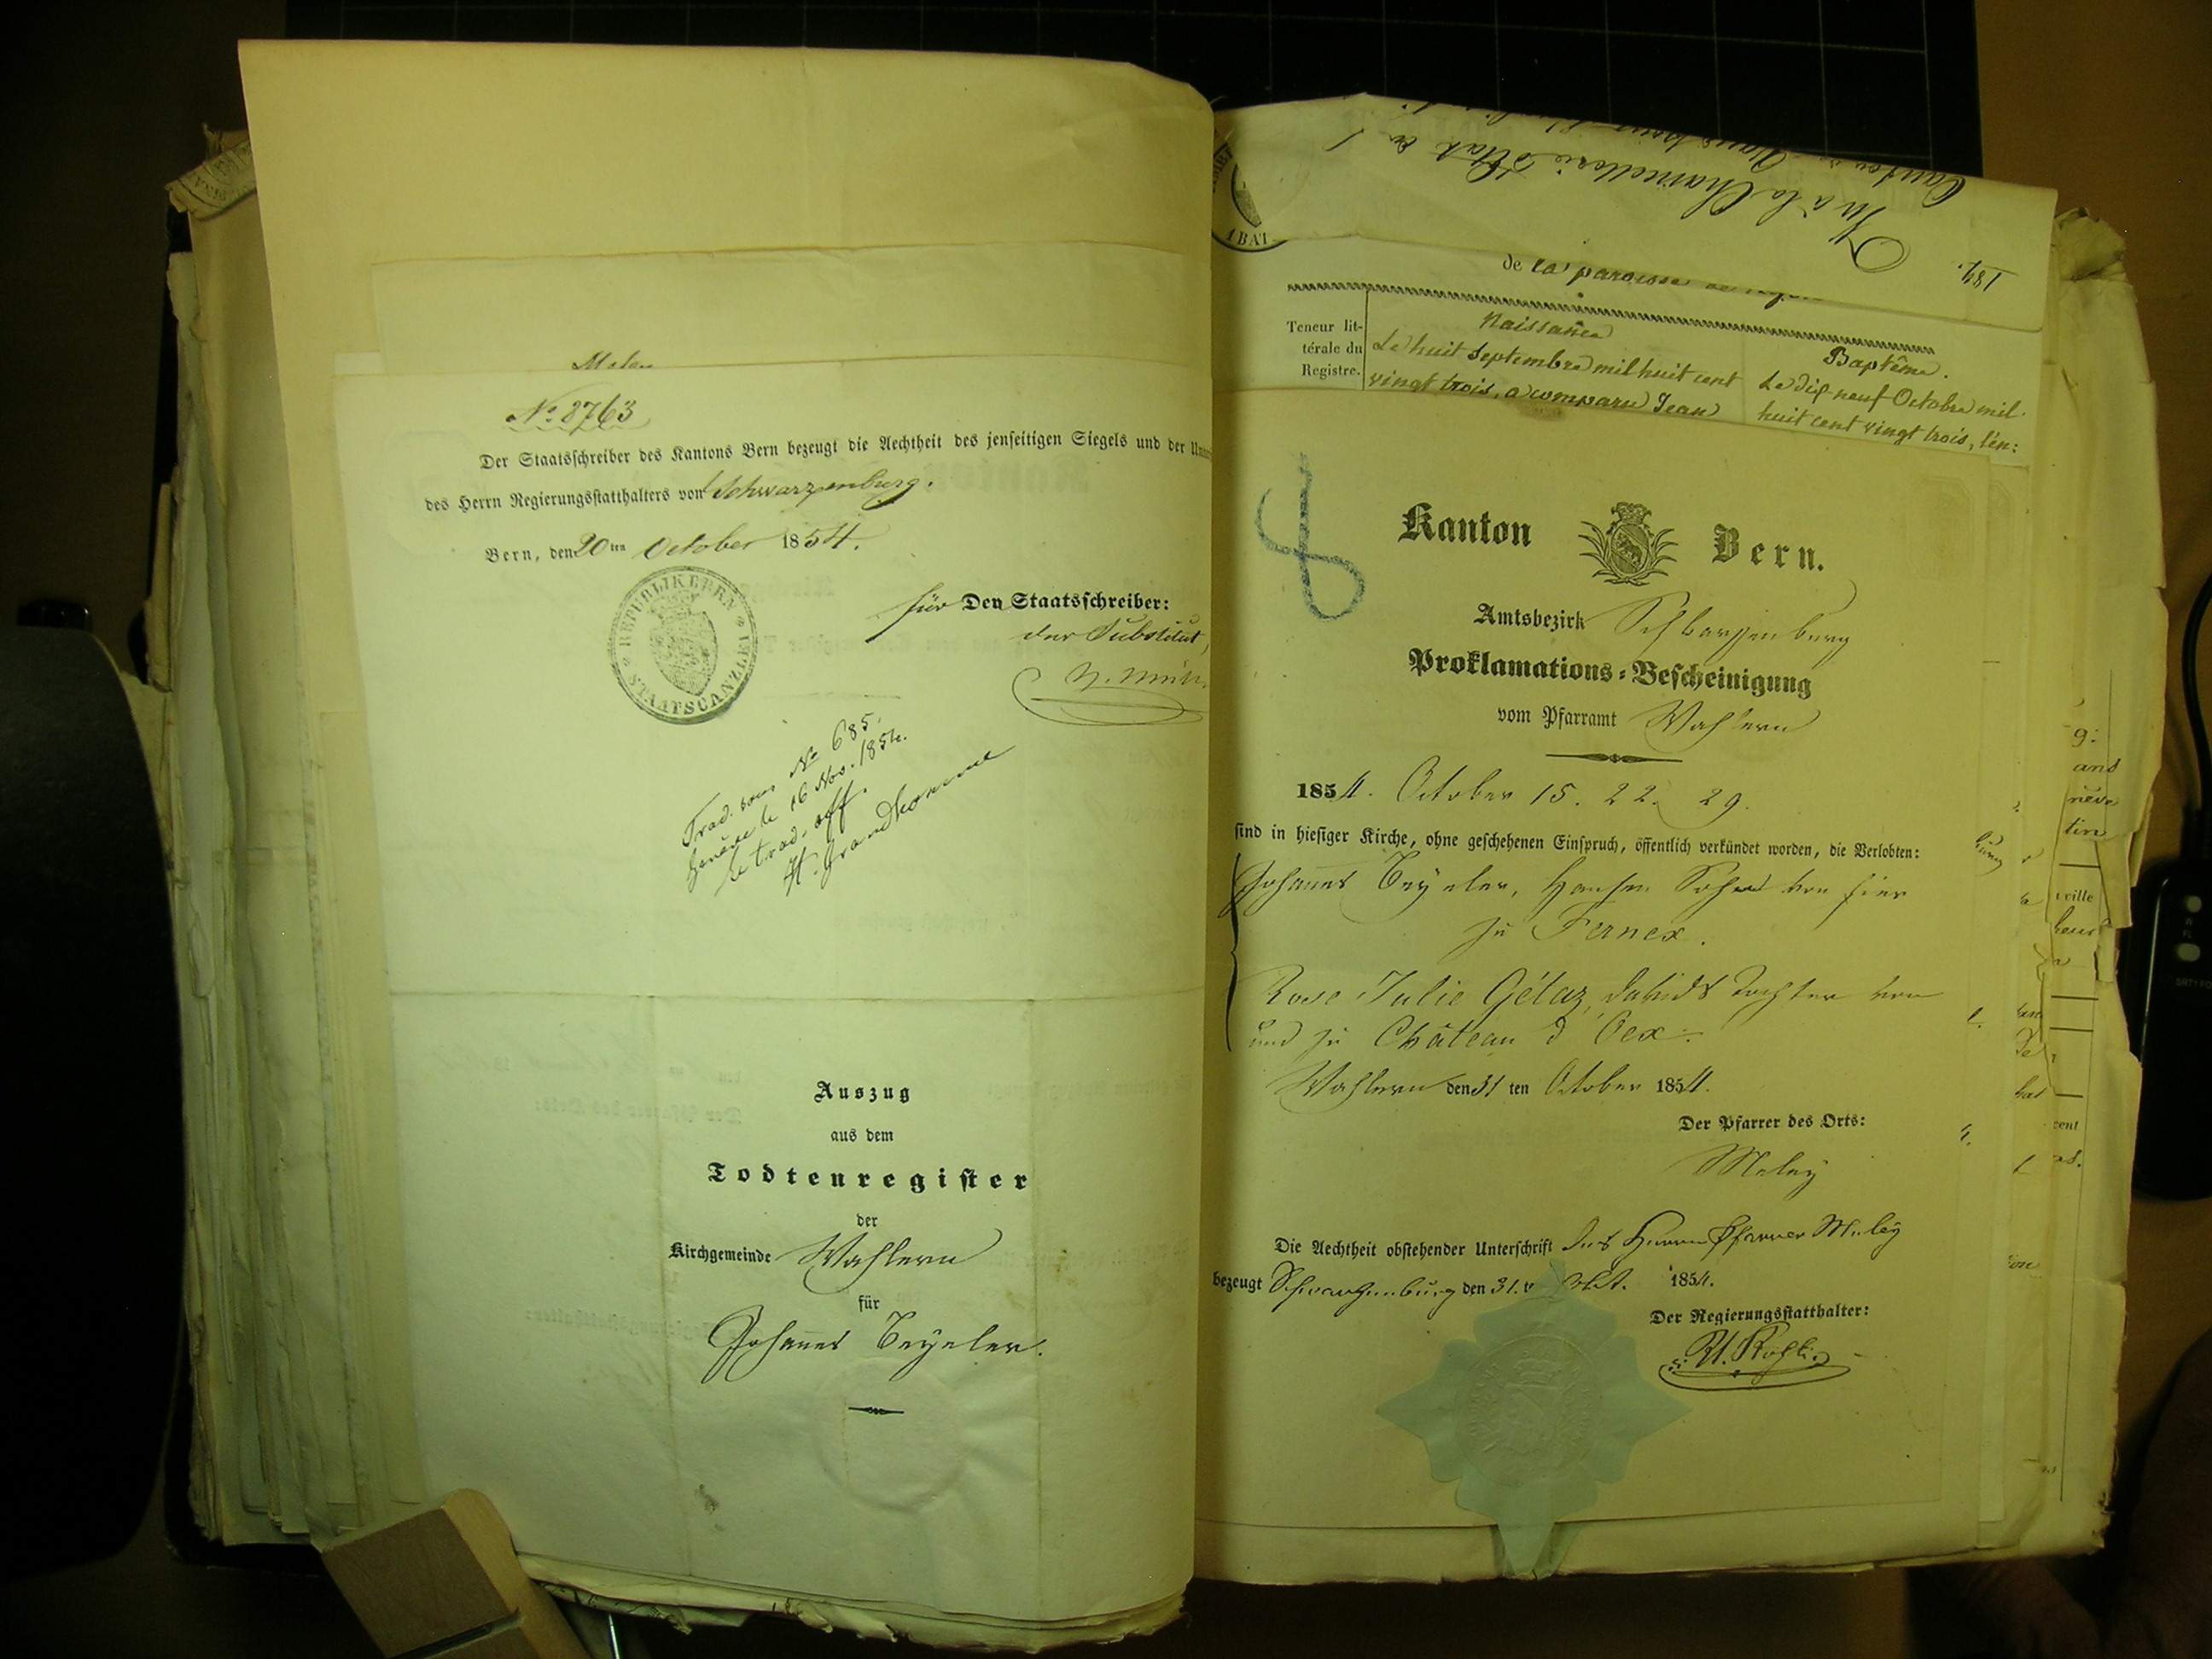 Nº 8763
Der Staatsschreiber des Kantons Bern bezeugt die Aechtheit des jenseitigen Siegels und der
des Herrn Regierungsstatthalters von Schwarzenburg.
Bern, den 20ten October 1854.
REPUBLIK BERN
STAATSCANZLEI
für Den Staatsschreiber:
der Substitut,
Trad. sous Nº 685.
Genève le 16 Nov. 1854.
le trad. off.
H. Grandhomme
Auszug
aus dem
Todtenregister
der
Kirchgemeinde Wahlern
für
Johannes Beyeler.
1 BAT
de la paroisse de
Teneur lit-
térale du
Registre.
Naissance
Le huit Septembre mil huit cent
vingt trois, a comparu Jean
Baptême.
Le dix neuf Octobre mil
huit cent vingt trois,
8
Kanton Bern.
Amtsbezirk Schwarzenburg
Proklamations-Bescheinigung
vom Pfarramt Wahlern
1854. October 15. 22. 29.
sind in hiesiger Kirche, ohne geschehenen Einspruch, öffentlich verkündet worden, die Verlobten:
Johannes Beyeler, Hansen Sohn von hier
zu Fernex.
Rose Julie Gélaz, Davids Tochter von
und zu Château d'Oex.
Wahlern den 31ten October 1854.
Der Pfarrer des Orts:
Meley
Die Aechtheit obstehender Unterschrift des Herrn Pfarrer Meley
bezeugt Schwarzenburg den 31. Okt. 1854.
Der Regierungsstatthalter: